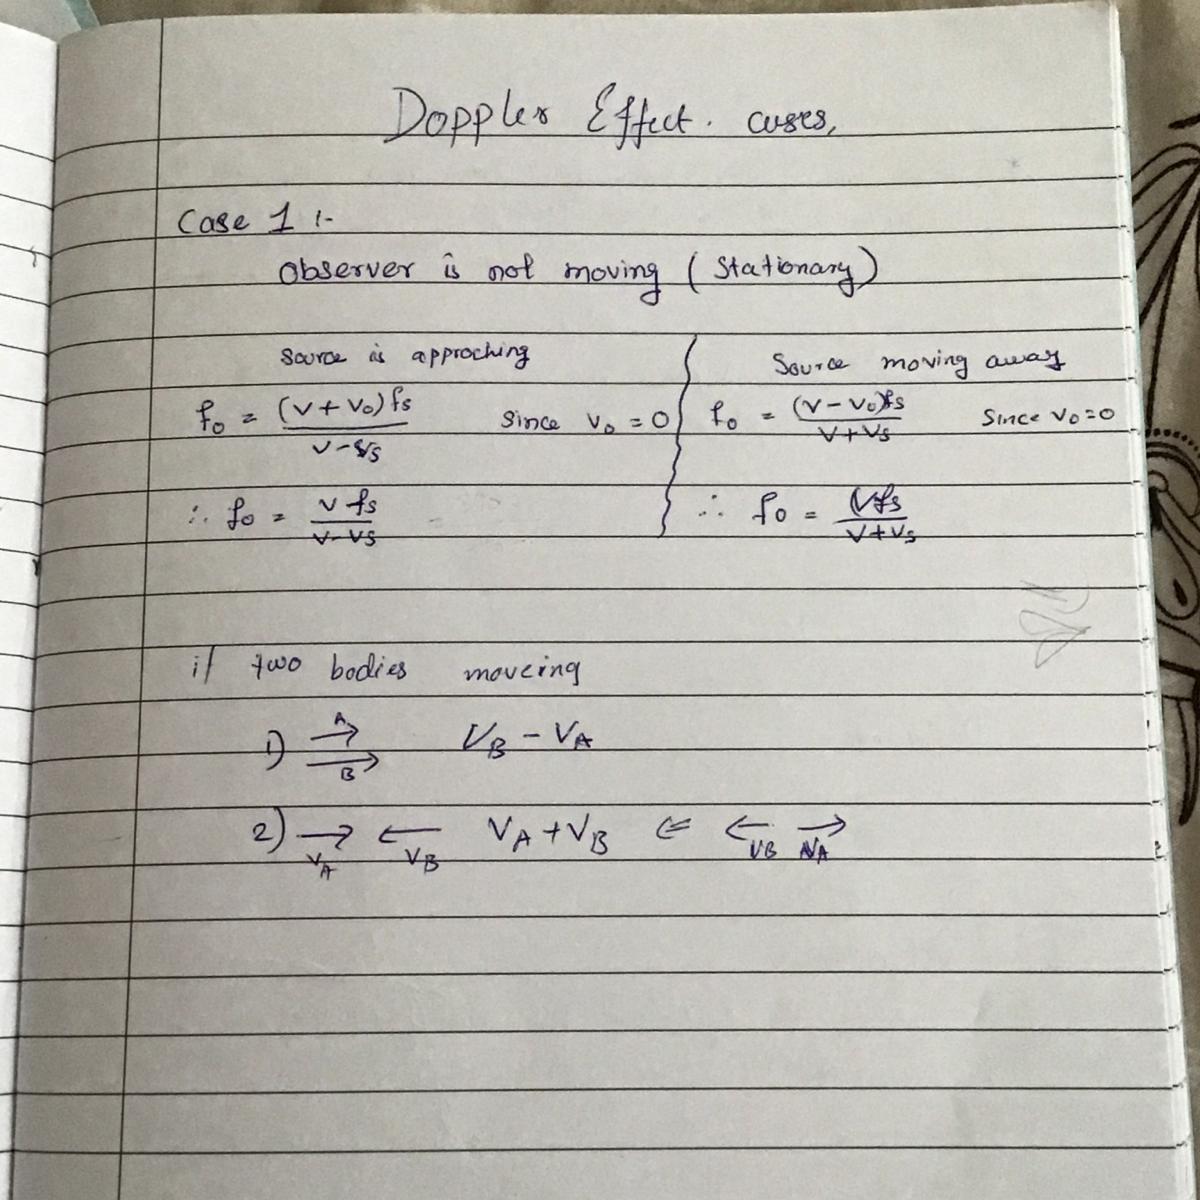 Doppler Effect. cases,
Case 1 :-
Observer is not moving (Stationary)
Source is approching
f₀ = (V + V₀) fs / V - Vs since V₀ = 0
∴ f₀ = V fs / V - Vs
Source moving away
f₀ = (V - V₀) fs / V + Vs Since V₀ = 0
∴ f₀ = Vfs / V + Vs
if two bodies moveing
1) A → B → V_B - V_A
2) → V_A ← V_B V_A + V_B ⇐ ← V_B → V_A